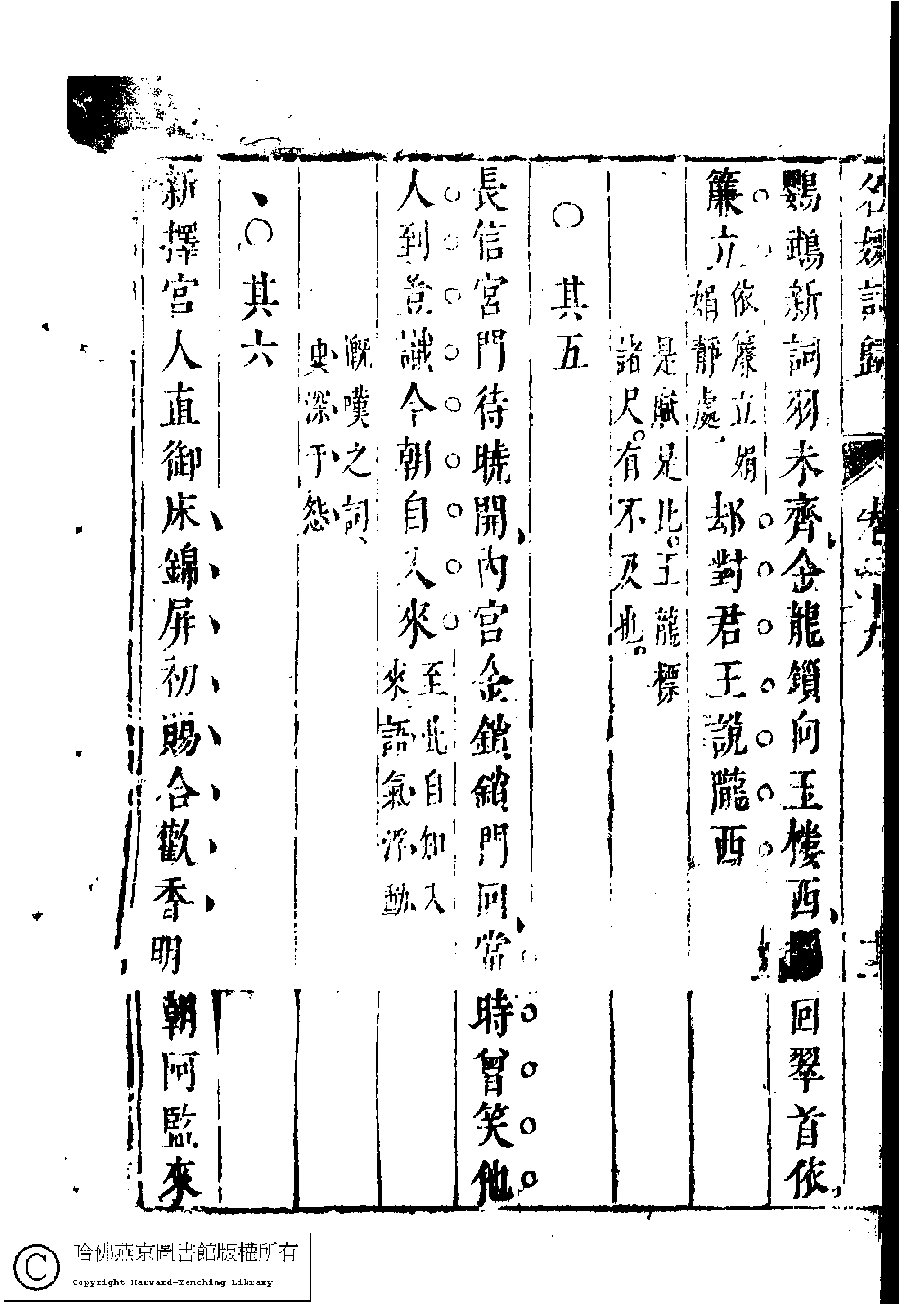 名媛詩歸 卷二十九
鸚鵡新詞羽未齊金龍鎖向玉樓西 回翠首依
簾立依簾立娟
娟靜處却對君王說隴西
是賦是比王龍標
諸尺有不及也
○其五
長信宮門待曉開內宮金鎖鎖門回當時曾笑他
人到豈讖今朝自入來至此自知入
來語氣深動
慨嘆之詞
更深于怨
○其六
新擇宮人直御床錦屏初賜合歡香明朝阿監來
哈佛燕京圖書館版權所有
Copyright Harvard-Yenching Library